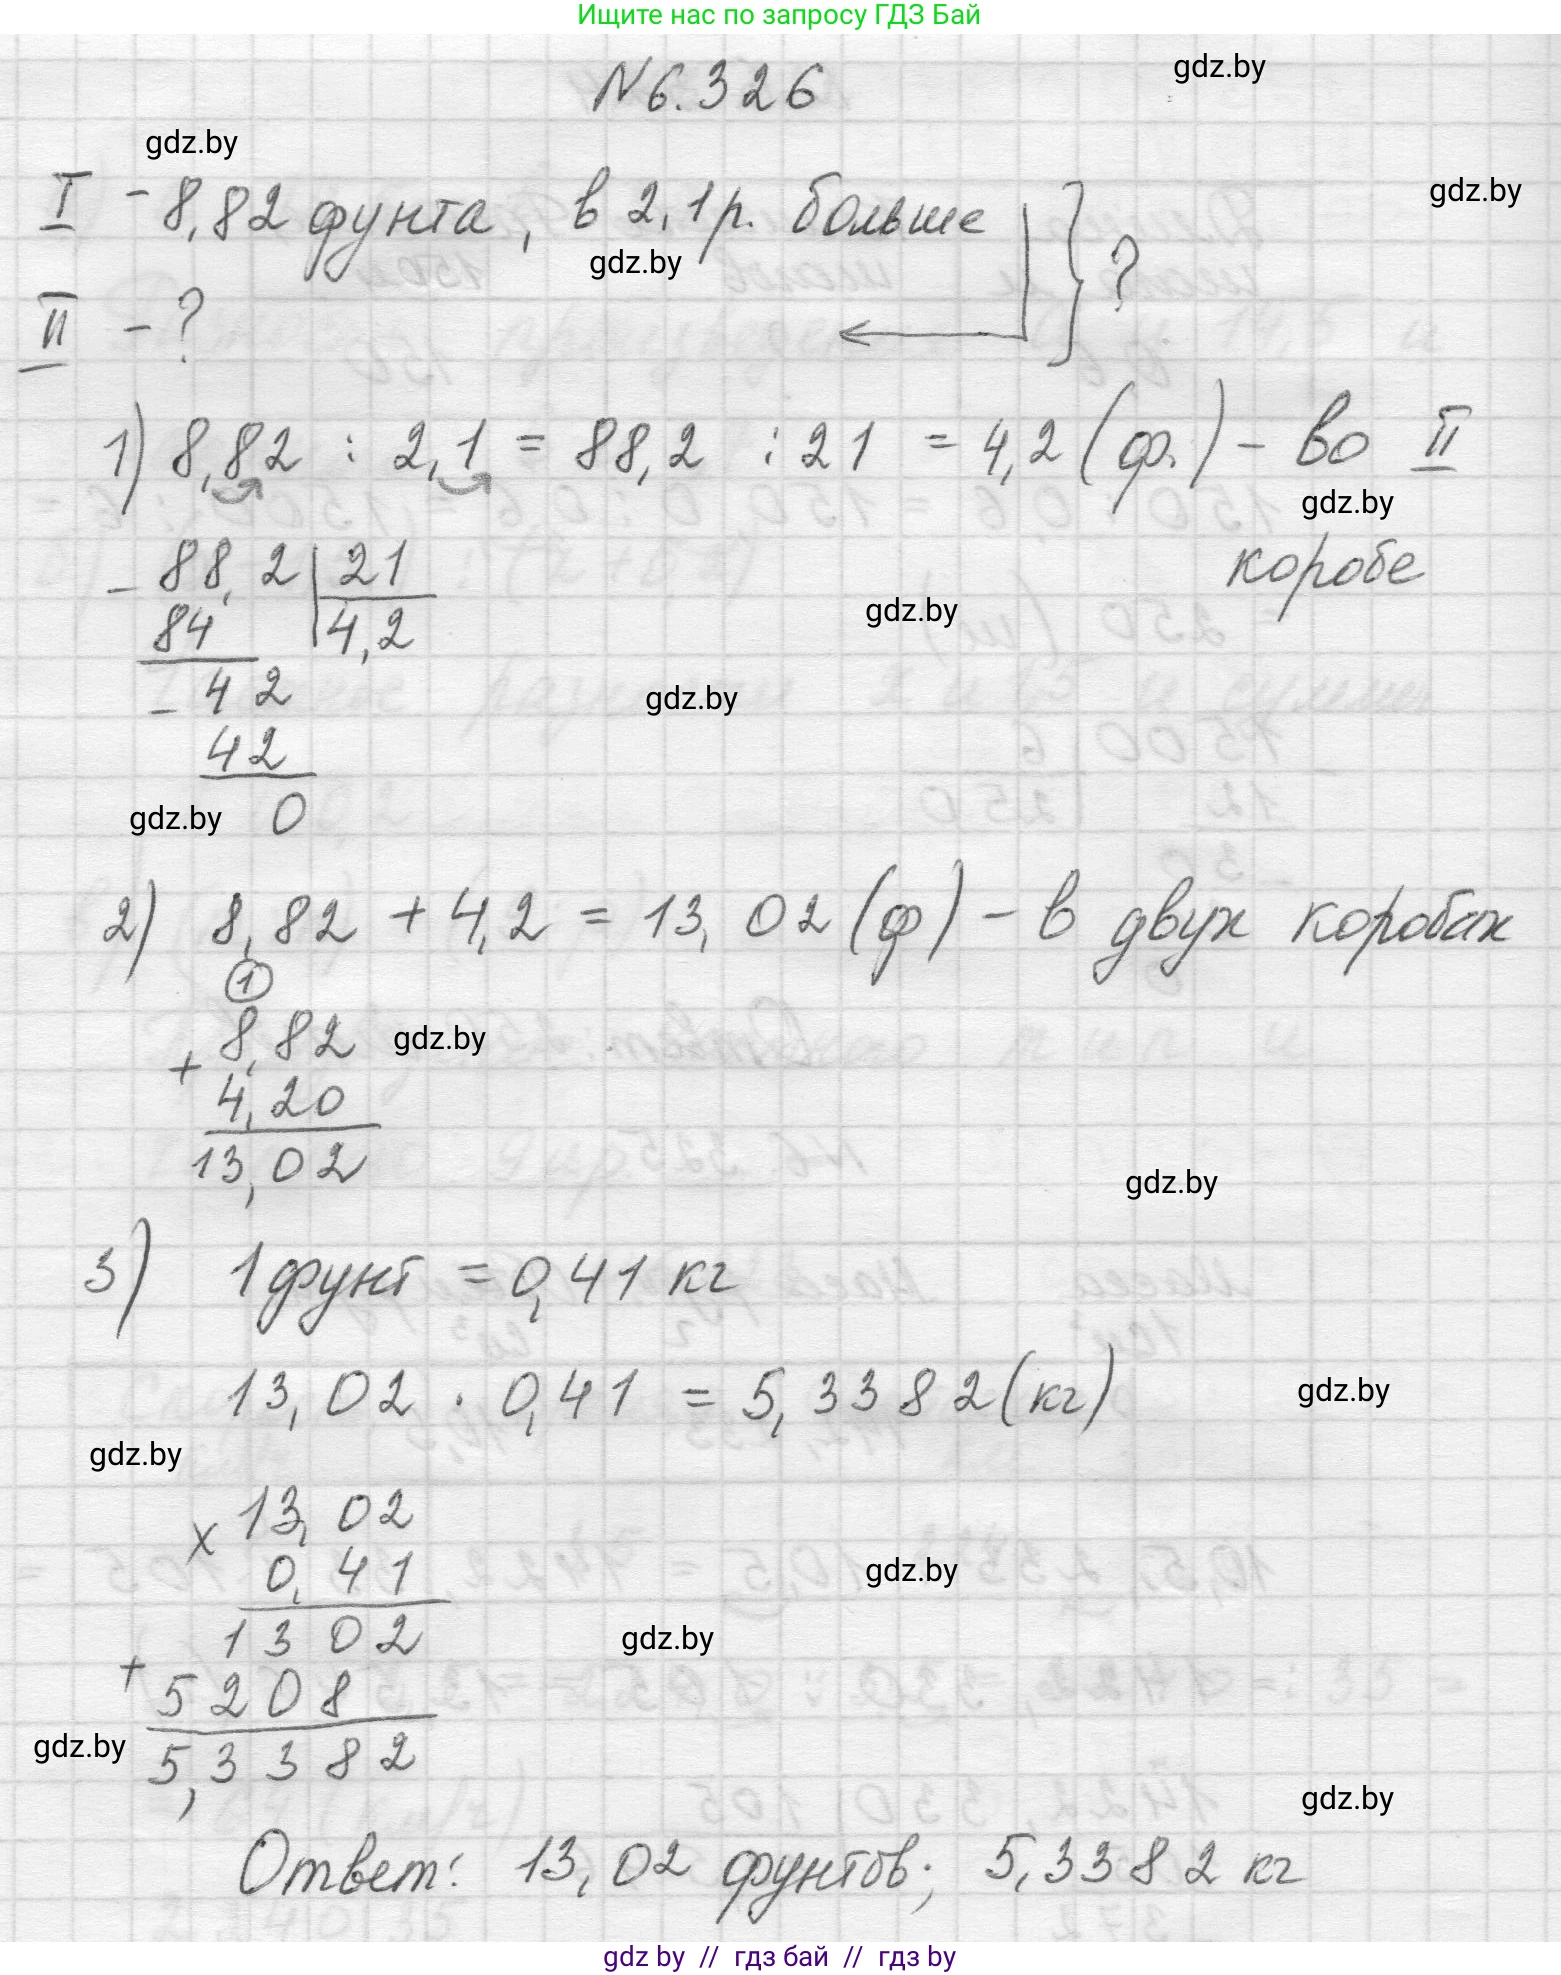 Ищите нас по запросу ГДЗ Бай
N 6.326
gdz.by
gdz.by
I - 8,82 фунта, в 2,1 р. больше
gdz.by
gdz.by
}?
II - ?
1) 8,82 : 2,1 = 88,2 : 21 = 4,2 (ф.) - во II
gdz.by
коробе
- 88,2 | 21
84 4,2
gdz.by
- 42
gdz.by
42
gdz.by
0
2) 8,82 + 4,2 = 13,02 (ф) - в двух коробах
1
8,82
gdz.by
+
4,20
13,02
gdz.by
3) 1 фунт = 0,41 кг
13,02 · 0,41 = 5,3382 (кг)
gdz.by
gdz.by
13,02
x
0,41
gdz.by
1302
gdz.by
+
5208
gdz.by
5,3382
gdz.by
Ответ: 13,02 фунтов; 5,3382 кг
gdz by // гдз бай // гдз by